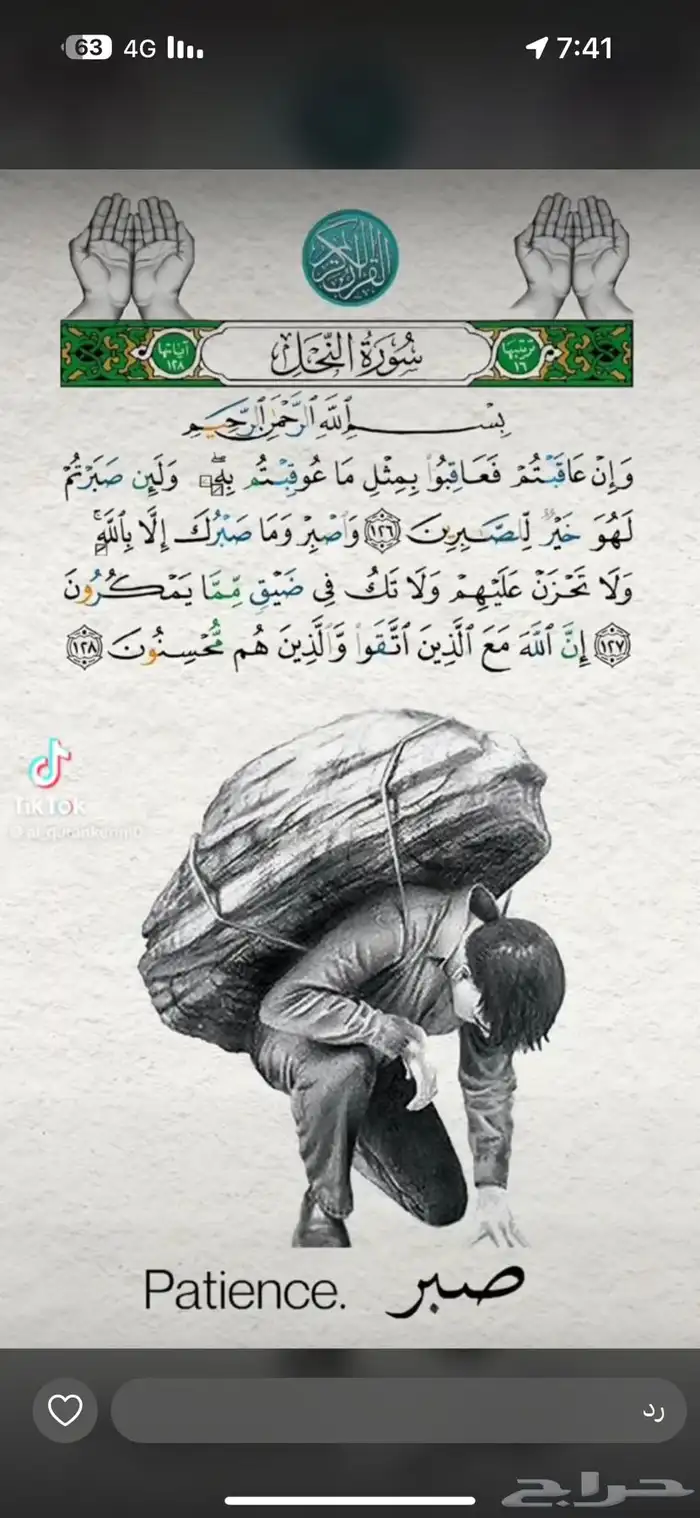 63 4G 7:41
القرآن الكريم
ترتيبها ١٦ سُورَةُ النَّحْلِ آياتها ١٢٨
بِسْمِ ٱللَّهِ ٱلرَّحْمَٰنِ ٱلرَّحِيمِ
وَإِنْ عَاقَبْتُمْ فَعَاقِبُوا۟ بِمِثْلِ مَا عُوقِبْتُم بِهِۦ ۖ وَلَئِن صَبَرْتُمْ
لَهُوَ خَيْرٌ لِّلصَّٰبِرِينَ ١٢٦ وَٱصْبِرْ وَمَا صَبْرُكَ إِلَّا بِٱللَّهِ ۚ
وَلَا تَحْزَنْ عَلَيْهِمْ وَلَا تَكُ فِى ضَيْقٍ مِّمَّا يَمْكُرُونَ
١٢٧ إِنَّ ٱللَّهَ مَعَ ٱلَّذِينَ ٱتَّقَوا۟ وَّٱلَّذِينَ هُم مُّحْسِنُونَ ١٢٨
TikTok
Patience. صبر
رد
حراج